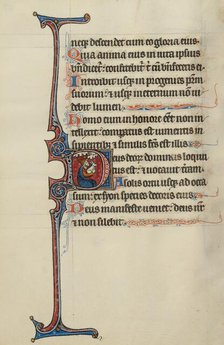 neqȝ descendet cum eo gloria eius.
Quia anima eius in uita ipsius
benedicet͛: confitebit͛ t̄ cū bñfecis ei.
Introibit usqȝ in progenies pm̄
suorum: ⁊ usqȝ in eternum non ui
debit lumen.
Homo cum in honore ēet non in
tellexit: comparatus est iumentis in
sipientibȝ ⁊ similis factus est illis.
Deus deorȝ dominus locqutus
tus est: ⁊ uocauit terram.
A solis ortu usqȝ ad occa
sum: ex syon species decoris eius.
Deus manifeste ueniet: deus nr̄
⁊ non silebit.